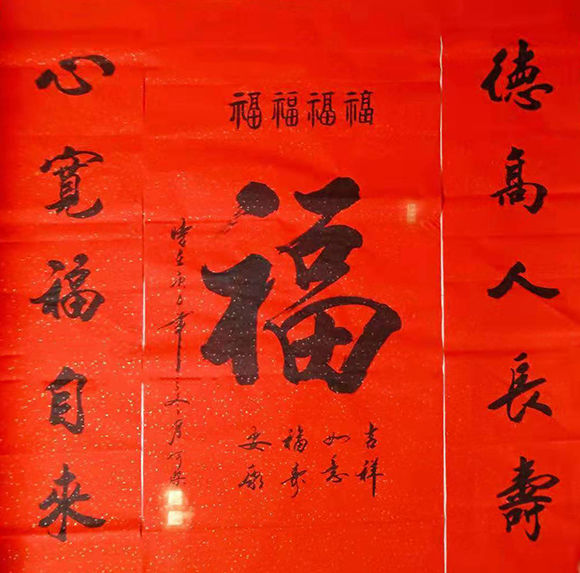 德高人長壽
福福福福
福
吉祥
如意
福寿
安康
心寬福自來